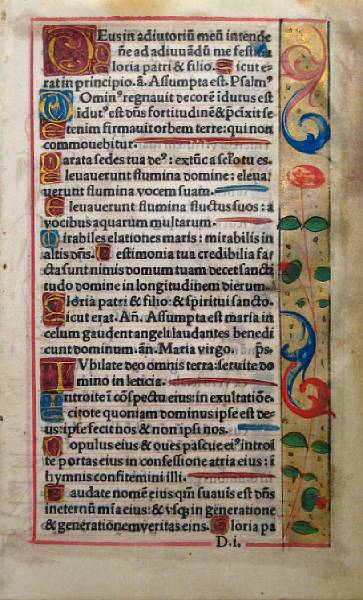 Deus in adiutoriū meū intende
ñe ad adiuuādū me festina
loria patri & filio. Sicut e
rat in principio. ā. Assumpta est. Psalmꝰ
Dominꝰ regnauit decorē idutus est
idutꝰ est dñs fortitudinē & p̄cixit se
etenim firmauit orbem terre: qui non
commouebitur.
Parata sedes tua deꝰ: ex tūc a sc̄lo tu es
Eleuauerunt flumina domine: eleua
uerunt flumina vocem suam.
Eleuauerunt flumina fluctus suos: a
vocibus aquarum multarum.
Mirabiles elationes maris: mirabilis in
altis dñs. Testimonia tua credibilia fa
cta sunt nimis domum tuam decet sancti
tudo domine in longitudinem dierum.
Gloria patri & filio: & spiritui sancto.
Sicut erat. Añ. Assumpta est maria in
celum gaudent angeli laudantes benedi
cunt dominum. añ. Maria virgo. ps.
IVbilate deo omnis terra: seruite do
mino in leticia.
Introite ī cōspectu eius: in exultatiōe.
Scitote quoniam dominus ipse est de
us: ipse fecit nos & non ipsi nos.
Populus eius & oues pascue eiꝰ introi
te portas eius in confessione atria eius: ī
hymnis confitemini illi.
Laudate nomē eius qm̄ suauis est dñs
in eternū mīa eius: & vsq; in generatione
& generationem veritas eius. Gloria pa
D.i.